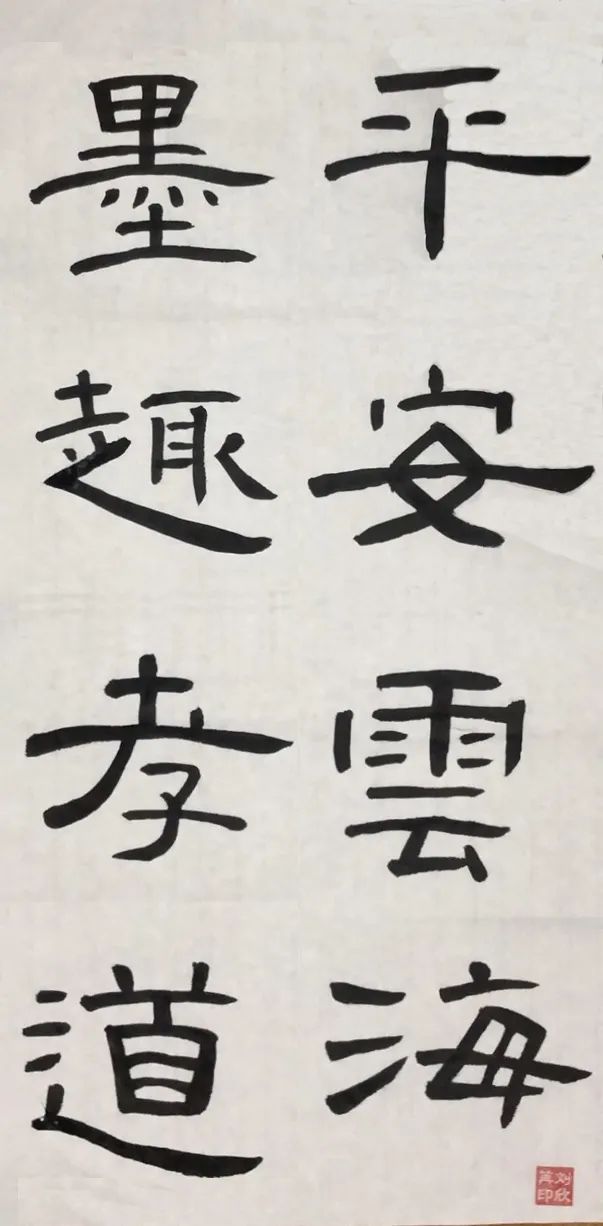 平安雲海
墨趣孝道
刘欣
印